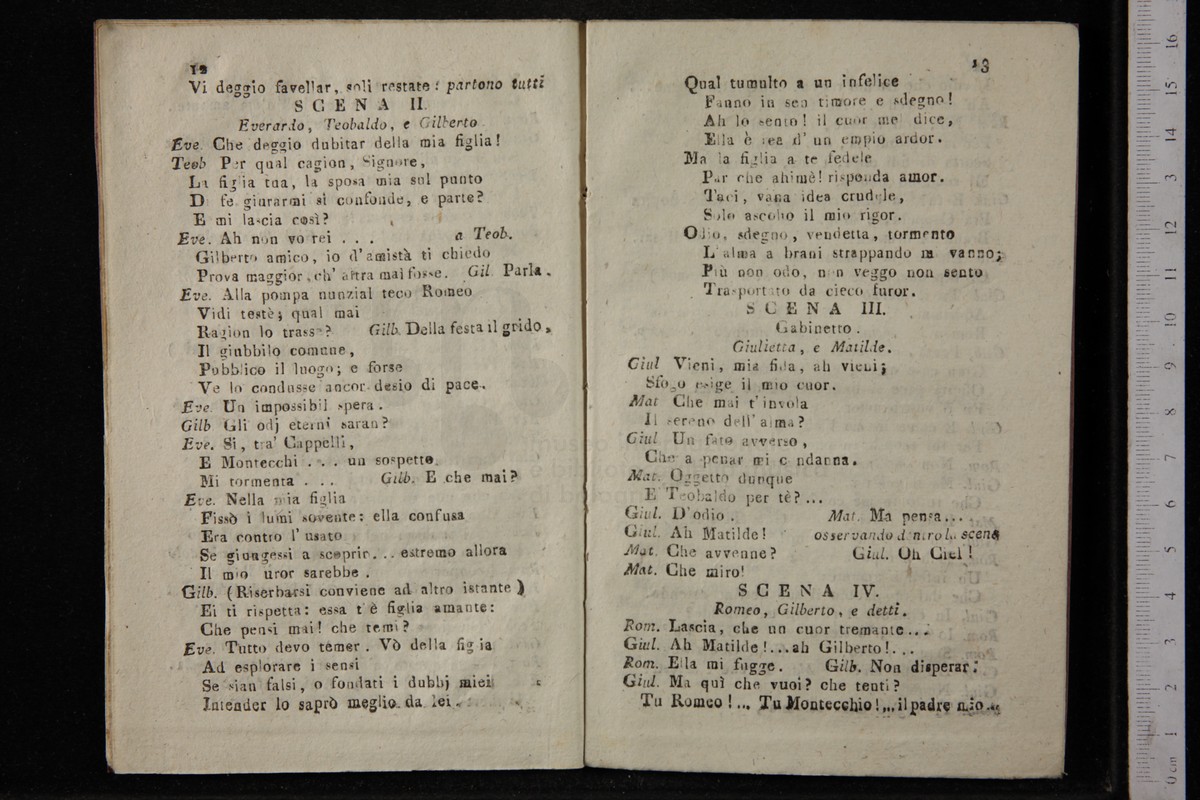 12
Vi deggio favellar, soli restate: partono tutti
SCENA II.
Everardo, Teobaldo, e Gilberto
Eve. Che deggio dubitar della mia figlia!
Teob Per qual cagion, Signore,
La figlia tua, la sposa mia sul punto
Di fe giurarmi si confonde, e parte?
E mi lascia così?
Eve. Ah non vorrei . . . a Teob.
Gilberto amico, io d'amistà ti chiedo
Prova maggior, ch' altra mai fosse. Gil. Parla.
Eve. Alla pompa nunzial teco Romeo
Vidi testè; qual mai
Ragion lo trasse? Gilb. Della festa il grido,
Il giubbilo comune,
Pubblico il luogo; e forse
Ve lo condusse ancor desio di pace.
Eve. Un impossibil spera.
Gilb Gli odj eterni saran?
Eve. Si, tra' Cappelli,
E Montecchi . . . un sospetto
Mi tormenta . . . Gilb. E che mai?
Eve. Nella mia figlia
Fissò i lumi sovente: ella confusa
Era contro l' usato
Se giungessi a scoprir... estremo allora
Il mio furor sarebbe.
Gilb. (Riserbarsi conviene ad altro istante)
Ei ti rispetta: essa t'è figlia amante:
Che pensi mai! che temi?
Eve. Tutto devo temer. Vò della figlia
Ad esplorare i sensi
Se sian falsi, o fondati i dubbj miei
Intender lo saprò meglio da lei.
13
Qual tumulto a un infelice
Fanno in sen timore e sdegno!
Ah lo sento! il cuor me dice,
Ella è rea d' un empio ardor.
Ma la figlia a te fedele
Par che ahimè! risponda amor.
Taci, vana idea crudele,
Solo ascolto il mio rigor.
Odio, sdegno, vendetta, tormento
L'alma a brani strappando m vanno;
Più non odo, non veggo non sento
Trasportato da cieco furor.
SCENA III.
Gabinetto.
Giulietta, e Matilde.
Giul Vieni, mia fida, ah vieni;
Sfogo esige il mio cuor.
Mat Che mai t'invola
Il sereno dell' alma?
Giul Un fato avverso,
Che a penar mi condanna.
Mat. Oggetto dunque
E' Teobaldo per tè?...
Giul. D'odio. Mat. Ma pensa...
Giul. Ah Matilde! osservando dentro la scena
Mat. Che avvenne? Giul. Oh Ciel!
Mat. Che miro!
SCENA IV.
Romeo, Gilberto, e detti.
Rom. Lascia, che un cuor tremante...
Giul. Ah Matilde!...ah Gilberto!...
Rom. Ella mi fugge. Gilb. Non disperar.
Giul. Ma quì che vuoi? che tenti?
Tu Romeo!... Tu Montecchio!... il padre mio...